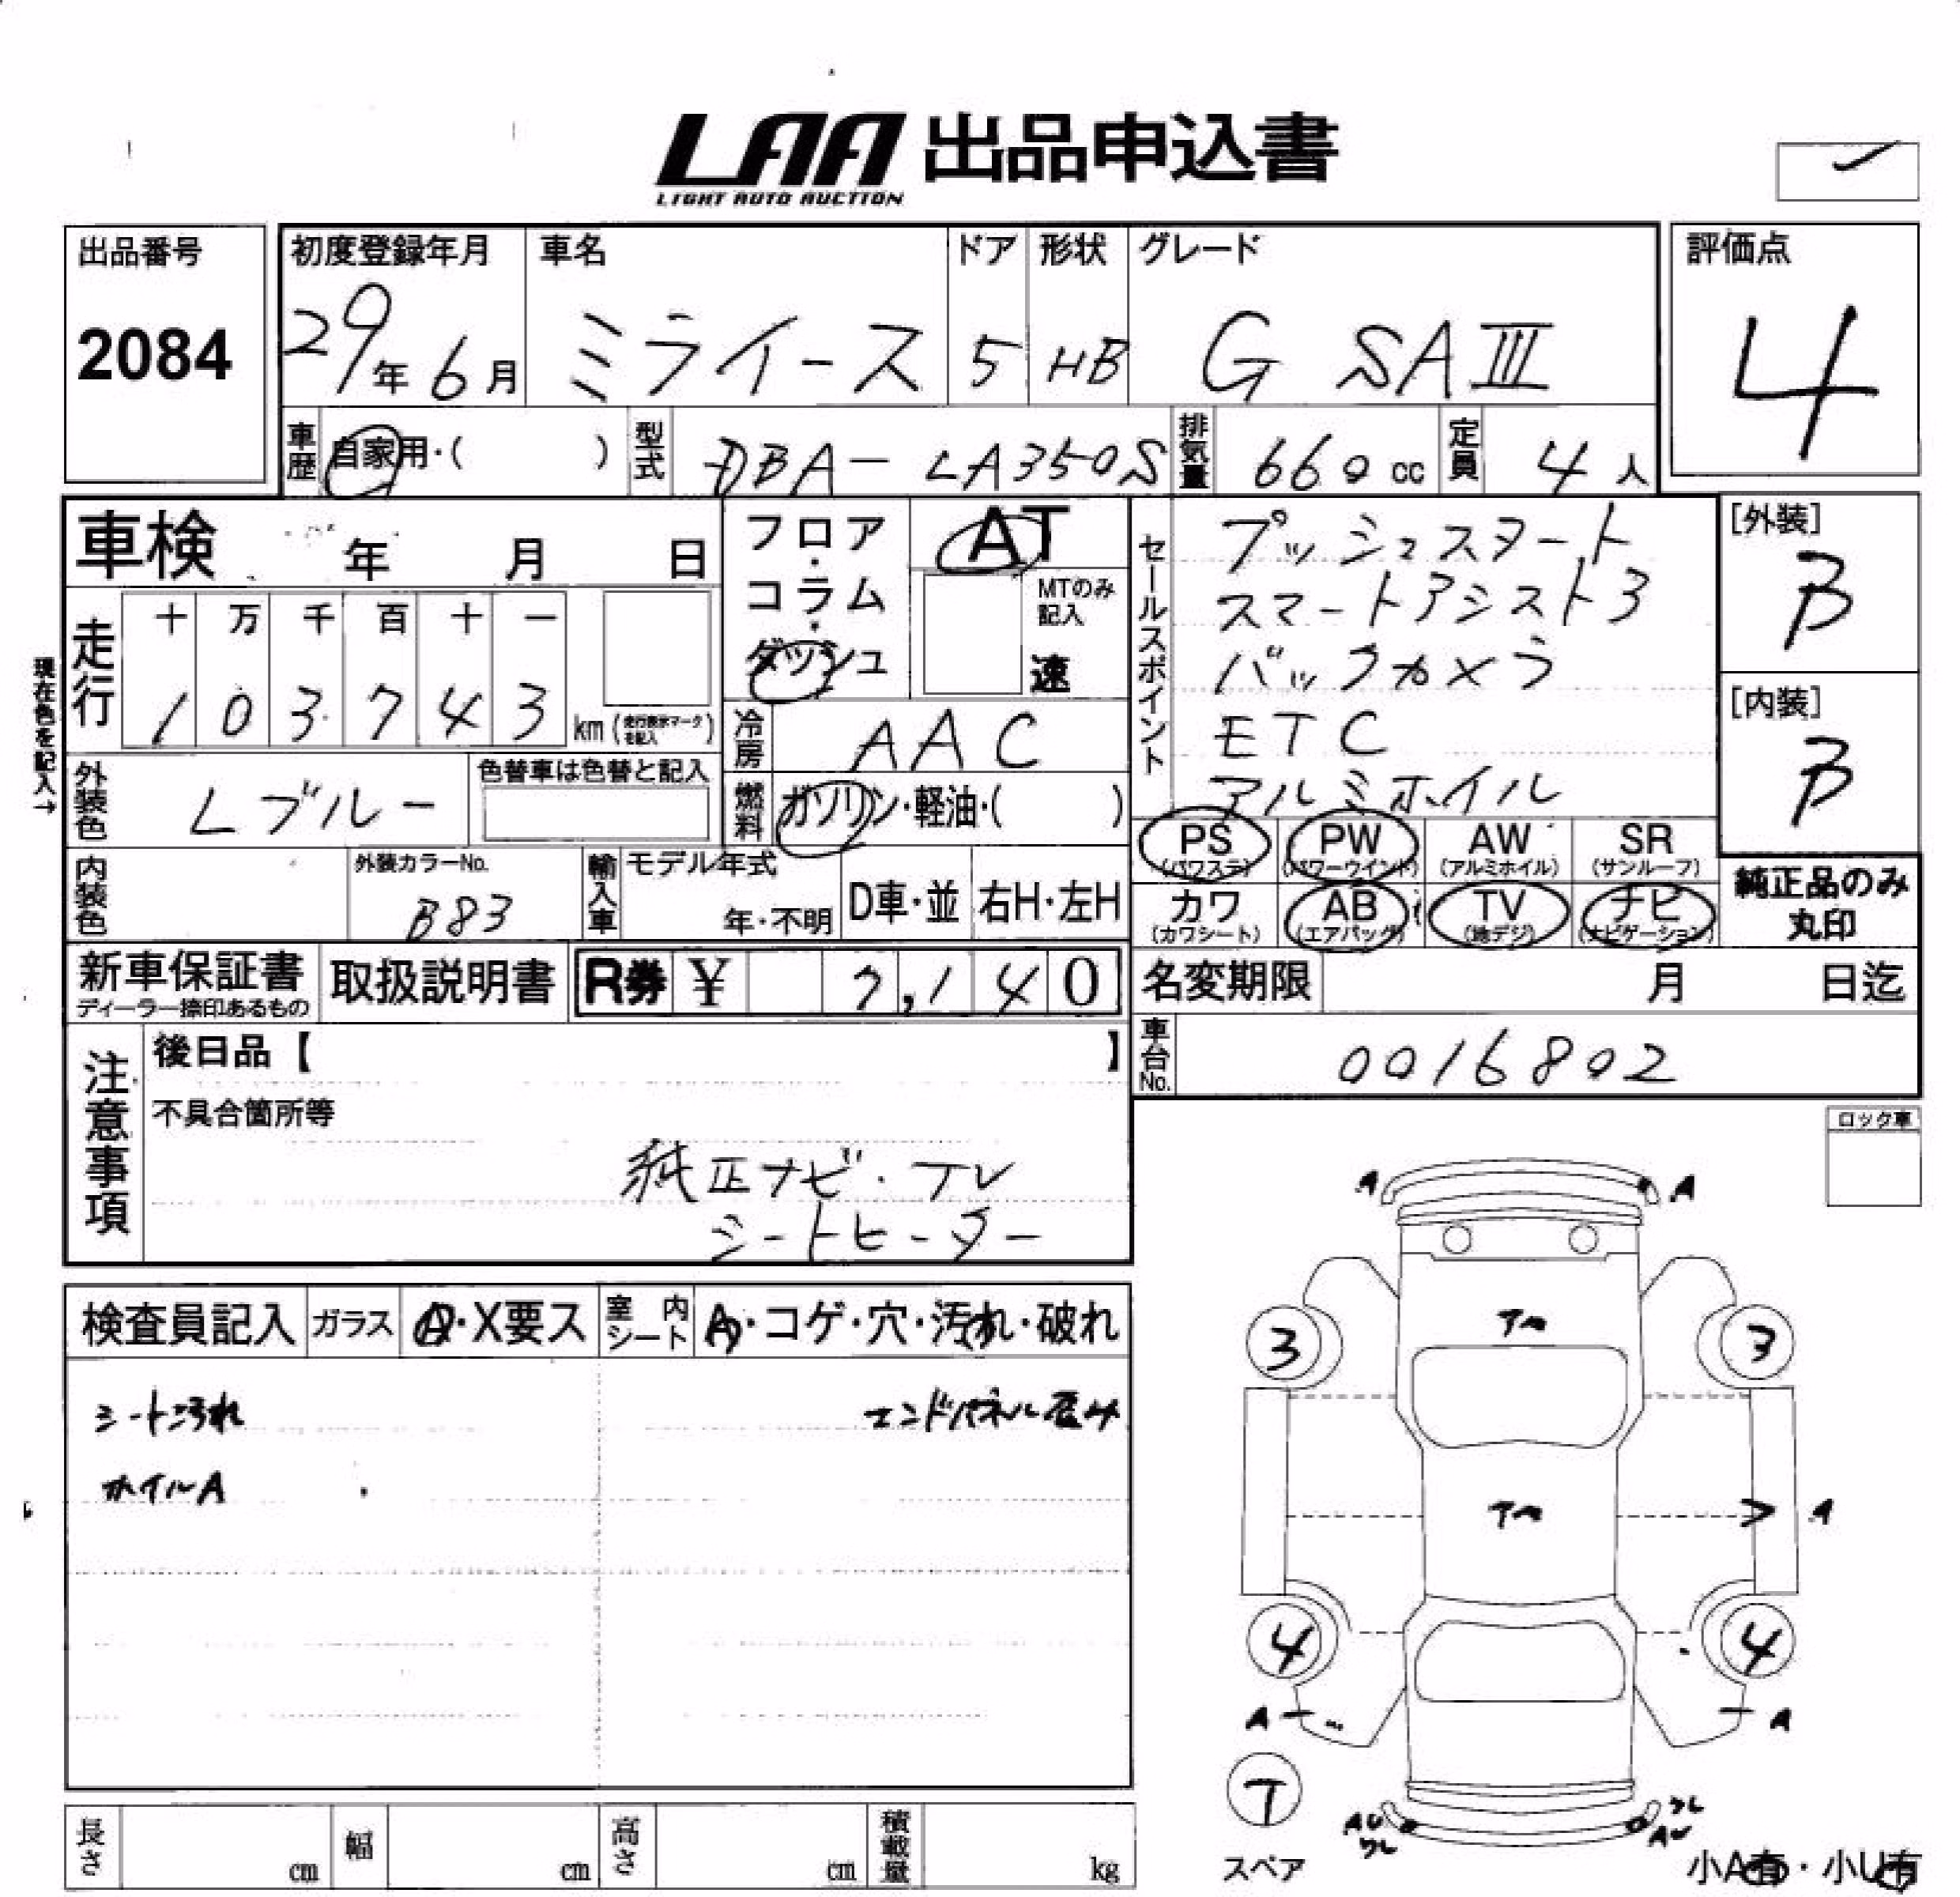 LAA 出品申込書
LIGHT AUTO AUCTION
出品番号
2084
初度登録年月
29年6月
車名
ミライース
ドア
5
形状
HB
グレード
G SAⅢ
評価点
4
車歴
自家用・( )
型式
DBA-LA350S
排気量
660cc
定員
4人
車検 年 月 日
フロア・コラム・ダッシュ
AT
MTのみ記入
速
セールスポイント
プッシュスタート
スマートアシスト3
バックカメラ
ETC
アルミホイル
[外装]
B
[内装]
B
現在色を記入→
走行
十 万 千 百 十 一
1 0 3 7 4 3
km (走行表示マークを記入)
冷房
AAC
外装色
Lブルー
色替車は色替と記入
燃料
ガソリン・軽油・( )
PS
(パワステ)
PW
(パワーウインド)
AW
(アルミホイル)
SR
(サンルーフ)
カワ
(カワシート)
AB
(エアバッグ)
TV
(地デジ)
ナビ
(ナビゲーション)
純正品のみ
丸印
内装色
外装カラーNo.
B83
輸入車
モデル年式
年・不明
D車・並
右H・左H
新車保証書
ディーラー捺印あるもの
取扱説明書
R券 ¥ 7,140
名変期限 月 日迄
車台No.
0016802
注意事項
後日品【 】
不具合箇所等
純正ナビ・TV
シートヒーター
ロック車
検査員記入
ガラス
A・X要ス
室内シート
A・コゲ・穴・汚れ・破れ
シート汚れ
エンドパネル歪み
ホイルA
A A
3 3
アペ
アペ
A
4 4
A A
T
スペア
AU
ワレ
ワレ
AU
小A有・小U有
長さ cm
幅 cm
高さ cm
積載量 kg